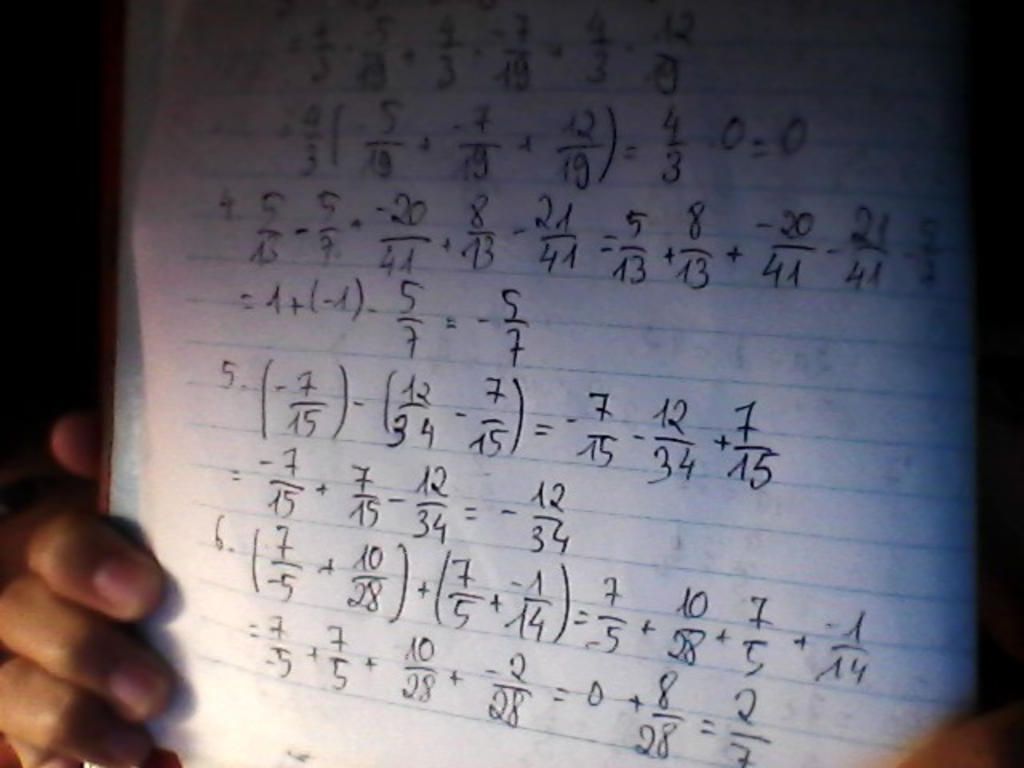 = 4/3 · 5/19 + 4/3 · -7/19 + 4/3 · 12/19
= 4/3 ( -5/19 + -7/19 + 12/19 ) = 4/3 · 0 = 0
4. 5/13 - 5/7 + -20/41 + 8/13 - 21/41 = 5/13 + 8/13 + -20/41 - 21/41 - 5/7
= 1 + (-1) - 5/7 = - 5/7
5. ( -7/15 ) - ( 12/34 - 7/15 ) = -7/15 - 12/34 + 7/15
= -7/15 + 7/15 - 12/34 = - 12/34
6. ( 7/-5 + 10/28 ) + ( 7/5 + -1/14 ) = 7/-5 + 10/28 + 7/5 + -1/14
= 7/-5 + 7/5 + 10/28 + -2/28 = 0 + 8/28 = 2/7